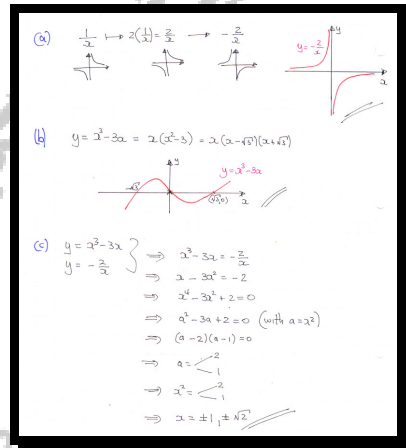 (a) 1/x ↦ 2(1/x) = 2/x → -2/x
y
y = -2/x
x
(b) y = x³-3x = x(x²-3) = x(x-√3)(x+√3)
y
y = x³-3x
-√3
(√3,0)
x
(c) y = x³-3x
y = -2/x
⇒ x³-3x = -2/x
⇒ x⁴-3x² = -2
⇒ x⁴-3x²+2=0
⇒ a²-3a+2=0 (with a=x²)
⇒ (a-2)(a-1)=0
⇒ a = < 2
1
⇒ x² = < 2
1
⇒ x = ±1, ±√2